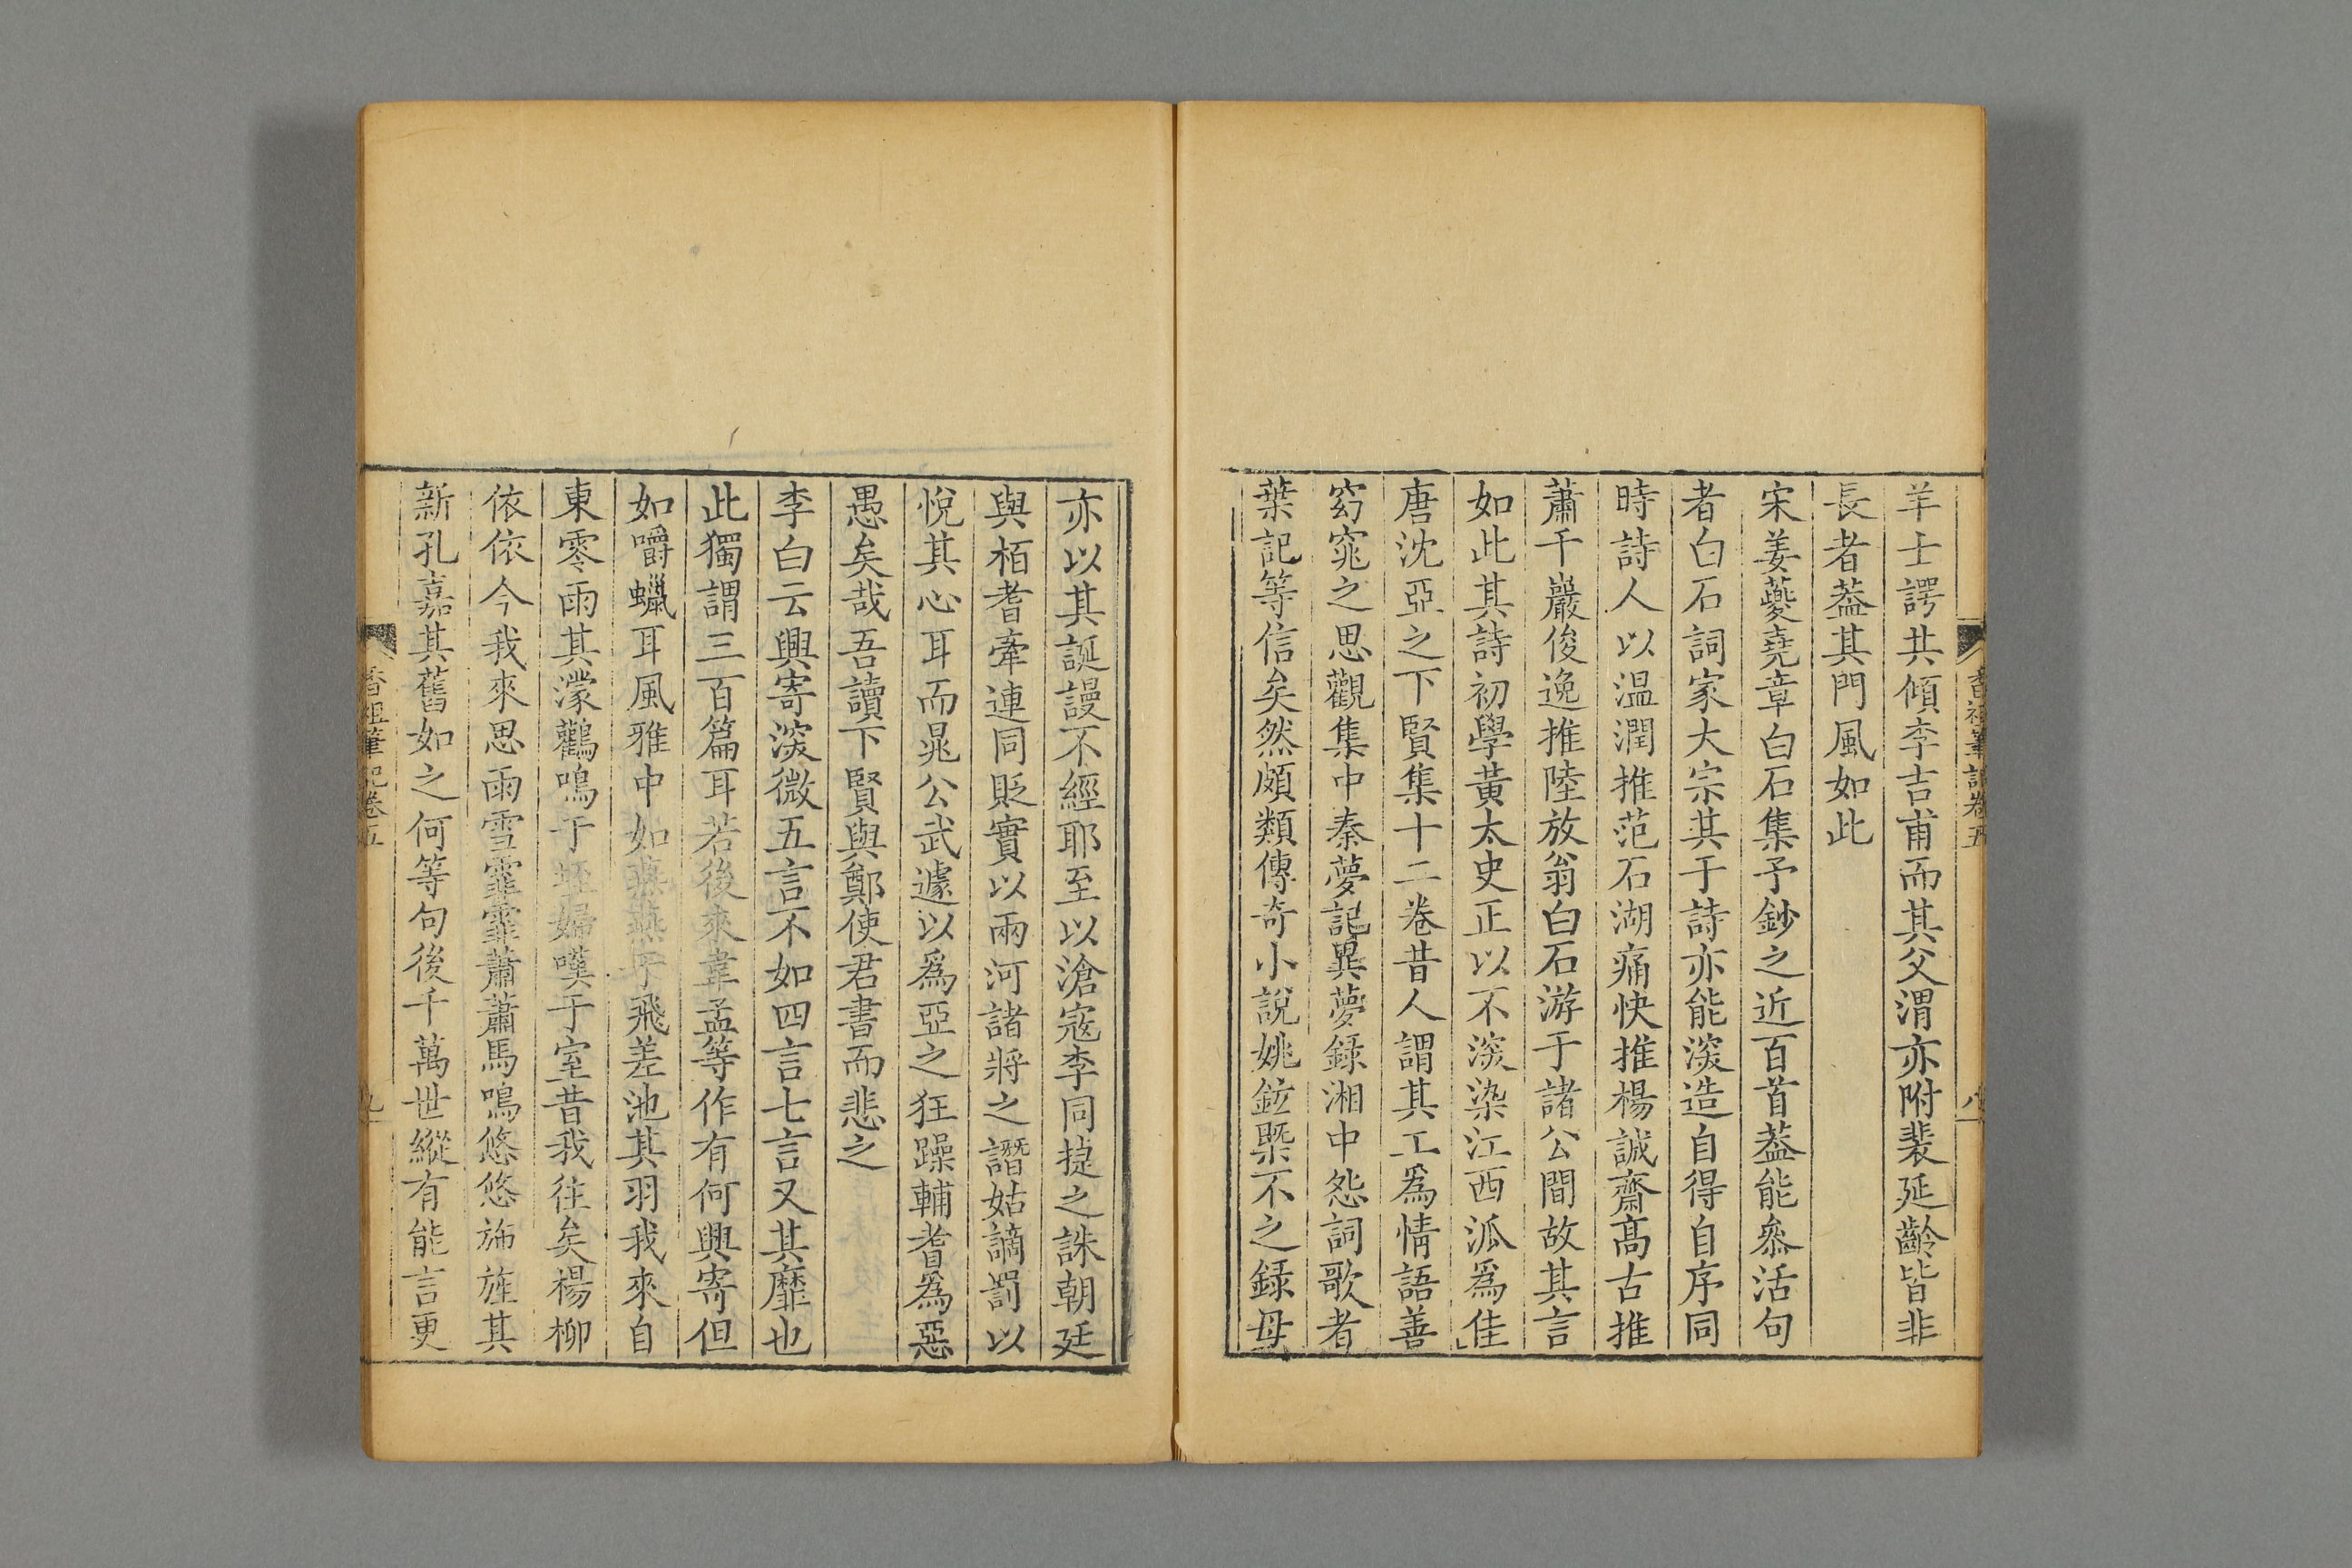 香祖筆記卷五
八
羊士諤共傾李吉甫而其父渭亦附裴延齡皆非
長者葢其門風如此
宋姜夔堯章白石集予鈔之近百首葢能叅活句
者白石詞家大宗其于詩亦能深造自得自序同
時詩人以温潤推范石湖痛快推楊誠齋高古推
蕭千巖俊逸推陸放翁白石游于諸公間故其言
如此其詩初學黃太史正以不深染江西派爲佳
唐沈亞之下賢集十二卷昔人謂其工爲情語善
窈窕之思觀集中秦夢記異夢録湘中怨詞歌者
葉記等信矣然頗類傳奇小說姚鉉槩不之録毋
亦以其誕謾不經耶至以滄寇李同捷之誅朝廷
與栢耆牽連同貶實以兩河諸將之譖姑謫罰以
悅其心耳而晁公武遽以爲亞之狂躁輔耆爲惡
愚矣哉吾讀下賢與鄭使君書而悲之
李白云興寄深微五言不如四言七言又其靡也
此獨謂三百篇耳若後來韋孟等作有何興寄但
如嚼蠟耳風雅中如燕燕于飛差池其羽我來自
東零雨其濛鸛鳴于垤婦嘆于室昔我往矣楊柳
依依今我來思雨雪霏霏蕭蕭馬鳴悠悠斾旌其
新孔嘉其舊如之何等句後千萬世縱有能言更
香祖筆記卷五
九